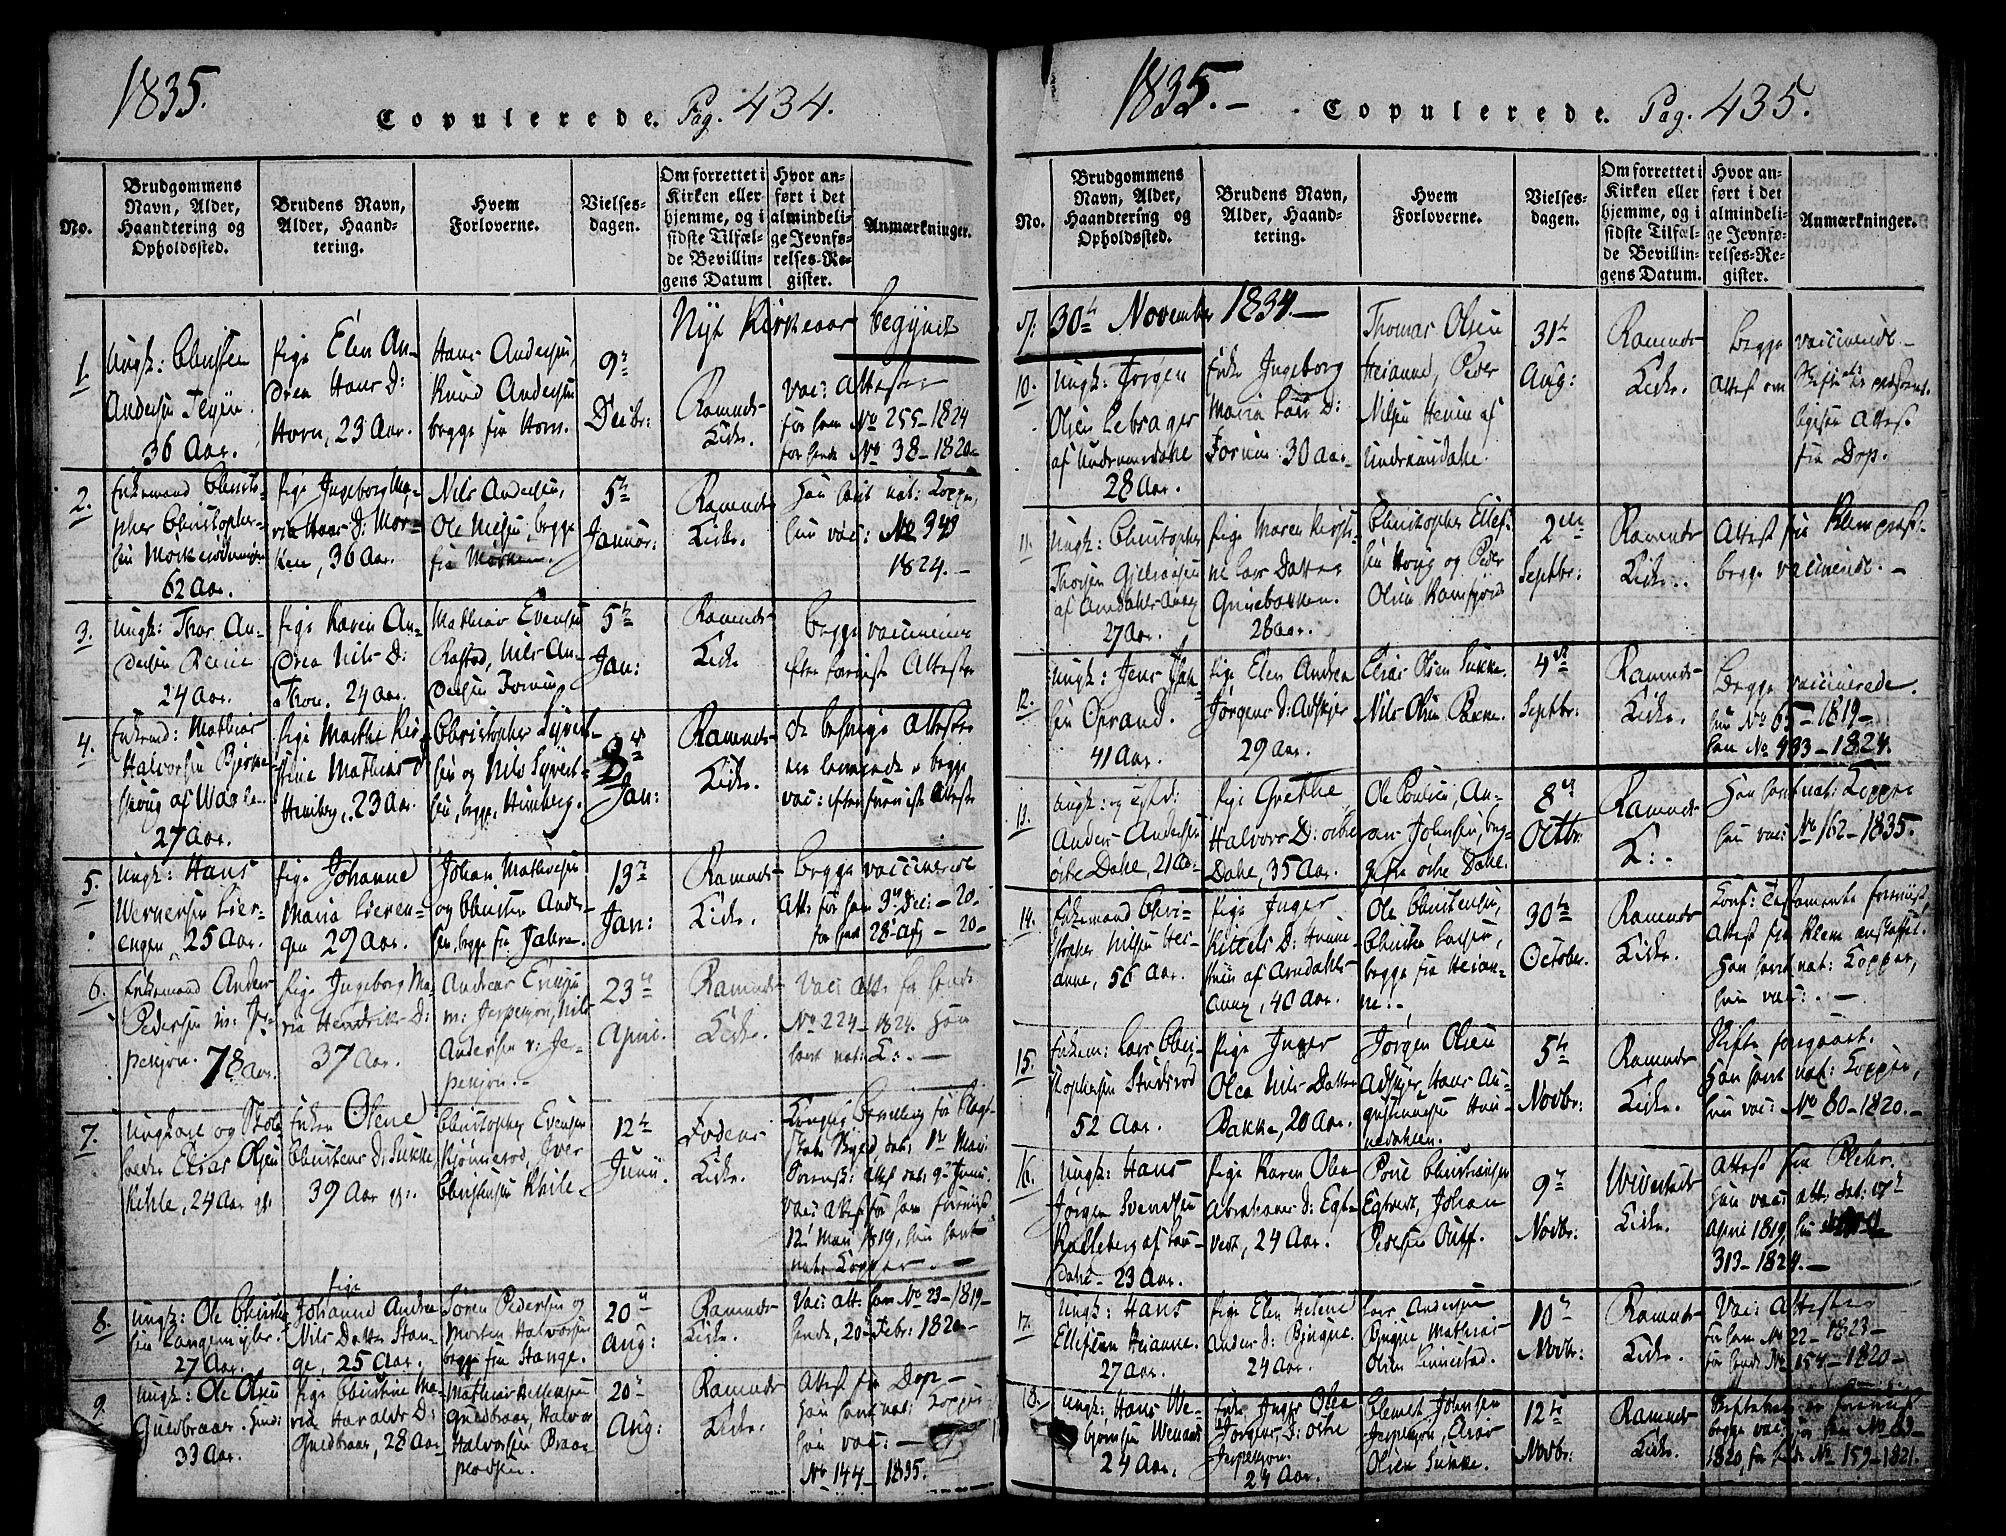 1835.
Copulerede. Pag. 434.
No.
Brudgommens Navn, Alder, Haandtering og Opholdssted.
Brudens Navn, Alder, Haandtering.
Hvem Forloverne.
Vielses-dagen.
Om forrettet i Kirken eller hjemme, og i sidste Tilfælde Bevillingens Datum
Hvor anført i det almindelige Jevnførelses-Register.
Anmærkninger.
Nyt Kirkeaar begyndt
1.
Ungk: Christen
Andersen
36 Aar.
Pige Elen An-
drea Hans D:
Horn, 23 Aar.
Hans Andersen,
Knud Andersen
begge fra Horn.
9de
Decbr:
Ramnds
Kirke.
vac: Attester
for ham No 255-1824
for hende No 38-1820-
2.
Enkemand Christo-
pher Christopher-
sen
62 Aar.
Pige Ingeborg Ma-
ria Hans D: Mør-
ken, 36 Aar.
Nils Andersen,
Ole Nilsen, begge
fra Mørken.
5te
Januar:
Ramnds
Kirke.
han havt nat: Kopper,
hun vac: No 343
1824.-
3.
Ungk: Thor An-
dersen
24 Aar.
Pige Karen An-
drea Nils D:
Thorn, 24 Aar.
Mathias Evensen
Rastad, Nils An-
dersen
5te
Jan:
Ramnds
Kirke
begge vaccinerede
efter foreviist Attester
4.
Enkemd: Mathias
Halvorsen Bjerke-
27 Aar.
Pige Marthe Kir-
stine Mathias D:
Himberg, 23 Aar.
Christopher Syvert-
sen og Nils Syvert-
sen, begge Himberg.
8de
Jan:
Ramnds
Kirke.
begge
vac: efter foreviist Attester
5.
Ungk: Hans
Wernersen Lier-
engen, 25 Aar.
Pige Johanne
Maria Lieren-
gen 29 Aar.
Johan Mathisen
og Christen Ander-
sen, begge fra
13de
Jan:
Ramnds
Kirke.
Begge vaccinerede
Att: for ham 3die Dec: - 20-
for hende 28 Aug - 20-
6.
Enkemand Anders
Pedersen m: Jes-
pesjon. 78 Aar.
Pige Ingeborg Ma-
ria Hendriks D:
37 Aar.
Andreas
m: Jespesjon, Nils
Andersen v: Je-
pesjon.-
23de
April.
Ramnds
Kirke.
Vac: Att: for hende
No 224-1824. Han
havt nat: K:.-
7.
Ungkarl og
Elias Olsen
Kihle, 24 Aar
Enke Olene
Christens D: Sukke
39 Aar
Christopher Evensen
Iver
Christensen
12te
Junii.
Fodens
Kirke.
Kongelig Bevilling
vac: Attest for ham foreviist
12 Mai 1819, hun havt
nat: Kopper.-
8.
Ungk: Ole Christen-
sen Langemyhr.
27 Aar.
Pige
Johanne Andrea
Nils Datter Han-
ge, 25 Aar.
Søren Pedersen og
Morten Halvorsen
begge fra Hange.
20de
Aug:
Ramnds
Kirke.
Vac: Att: ham No 23-1819-
hende, 20de Febr: 1820-
9.
Ungk: Ole Olsen
Guldbraar.
33 Aar.
Pige Christine Ma-
ria Haralds D:
Guldbraar, 28 Aar
Mathias
Guldbraar, Halvor
Halvorsen Braar
20de
Aug:
Ramnds
Kirke.
Attest fra Dop-
Han havt nat: Kopper
hun vac:-
No 144-1835.
1835.-
Copulerede. Pag. 435.
No.
Brudgommens Navn, Alder, Haandtering og Opholdssted.
Brudens Navn, Alder, Haandtering.
Hvem Forloverne.
Vielses-dagen.
Om forrettet i Kirken eller hjemme, og i sidste Tilfælde Bevillingens Datum.
Hvor anført i det almindelige Jevnførelses-Register.
Anmærkninger.
30te November 1834.-
10.
Ungk: Jørgen
Olsen Lebrager
af Undrumsdahe
28 Aar.
Enke Ingeborg
Maria Lars D:
Forum 30 Aar-
Thomas Olsen
Heianne, Peder
Nilsen
Undrumsdahe.
31te
Aug:
Ramnds
Kirke.
Begge vaccinerede-
Attest om
Attest
fra Dop.
11.
Ungk: Christopher
Thorsen
af Arndahls Annex
27 Aar.
Pige Maren Kirsti-
ne Lars Datter
Grinebakken.
28 Aar.
Christopher Ellef-
sen Houg og Peder
Olsen
2den
Septbr:
Ramnds
Kirke.
Attest fra
begge vaccinerede.-
12.
Ungk: Jens
Oprand.
41 Aar.
Pige Elen Andrea
Jørgens D: Adskjer
29 Aar.
Elias Olsen Sukke.
Nils Olsen Bakke.
4de
Septbr:
Ramnds
Kirke.
Begge vaccinerede.
hun No 65-1819-
ham No 433-1824.
13.
Anders Andersen
østre Dahe, 21 Aar
Pige Grethe
Halvors D: østre
Dahe, 35 Aar.
Ole Poulsen, An-
ders Johnsen, beg-
ge fra østre Dahe.
8de
Octbr.
Ramnds
K:-
Han havt nat: Kopper
hun vac: No 162-1835.
14.
Enkemand Chri-
stopher Nilsen Hei-
anne, 56 Aar.
Pige Inger
Kittels D:
af Arndahls
Annex, 40 Aar.
Ole Christensen,
Christen Larsen,
begge fra Heian-
ne.-
30te
October.
Ramnds
Kirke.
Attest fra
Han havt nat: Kopper,
hun vac:.-
15.
Enkem: Lars Chri-
stophersen Studsrød
52 Aar.
Pige Inger
Olea Nils Datter
Bakke, 20 Aar.
Jørgen Olsen
Adskjer, Hans Au-
gustinusen
5te
Novbr:
Ramnds
Kirke.
Skifte foregaaet.
Han havt nat: Kopper,
hun vac: No 80-1820.-
16.
Ungk: Hans
Jørgen Svendsen
Kalleberg af
23 Aar.
Pige Karen Olea
Abrahams D: Egt-
vedt, 24 Aar.
Christiansen
Egtvedt, Johan
Pedersen
9de
Novbr:
Wivestads
Kirke.
Attest fra
Han vac: Att: dat: 17de
April 1819, hun
313-1824.-
17.
Ungk: Hans
Ellefsen Heianne.
27 Aar.
Pige Elen Helene
Anders D: Bjugue.
24 Aar.
Lars Andersen
Bjugue Mathias
Olsen Linnestad.
10de
Novbr:
Ramnds
Kirke.
Vac: Attester
for ham No 22-1823-
for hende No 154-1820-
18.
Ungk: Hans We-
bjørnsen
24 Aar.
Inger Olea
Jørgens D: østre
Jespesjon.
24 Aar.
Clemet Johnsen
Jespesjon, Elias
Olsen Sukke.
12te
Novbr:
Ramnds
Kirke.
begge vac: for ham No 63-
1820, for hende No 159-1821.